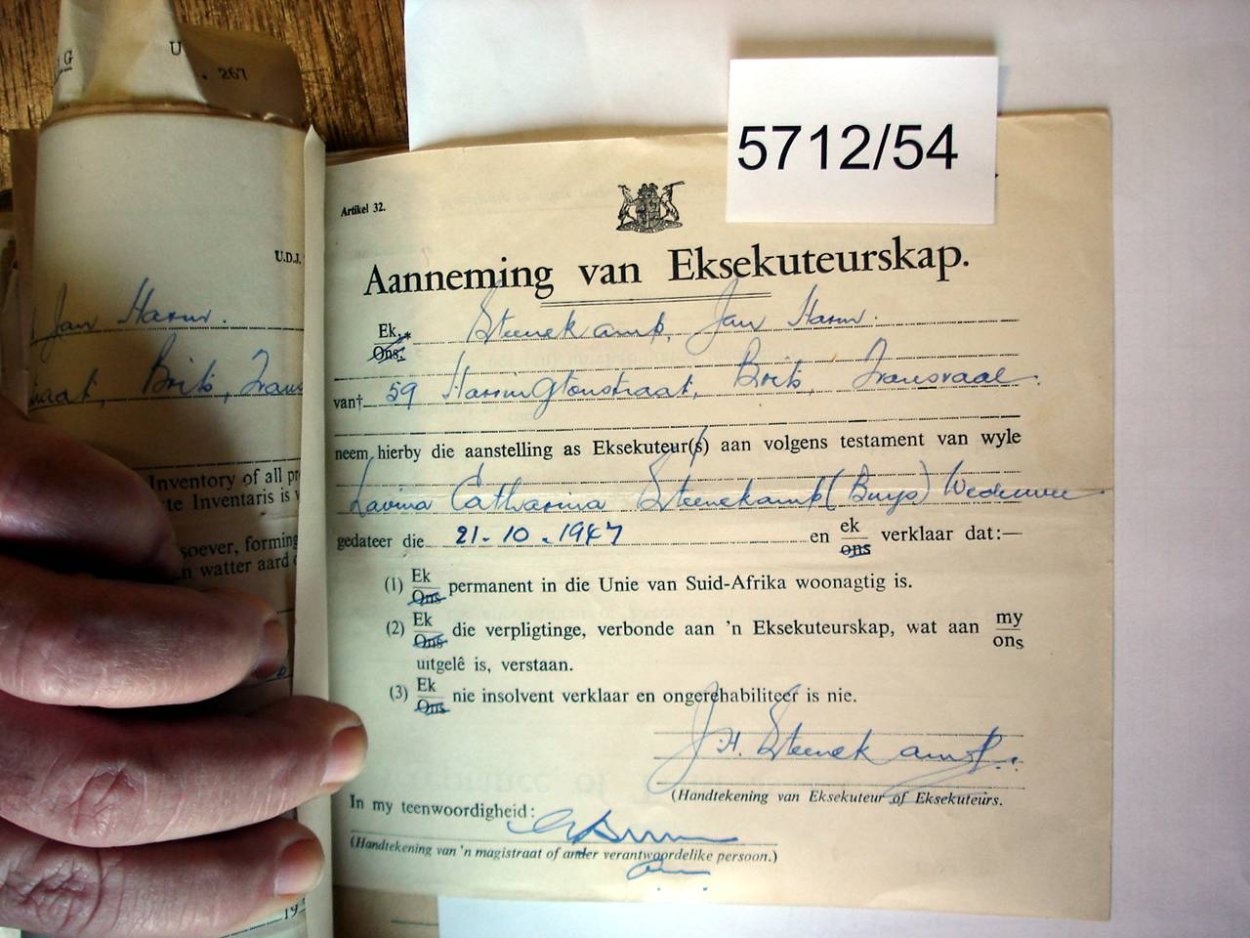 U
. 267
5712/54
U.D.J.
Jan Harm.
Brits, Trans
Inventory of all pr
te Inventaris is v
soever, forming
n watter aard o
19
Artikel 32.
Aanneming van Eksekuteurskap.
Ek,* Steenekamp, Jan Harm.
Ons,
van† 59 Harringtonstraat, Brits, Transvaal.
neem hierby die aanstelling as Eksekuteur(s) aan volgens testament van wyle
Lavina Catharina Steenekamp (Buys) Weduwee
gedateer die 21.10.1947 en ek verklaar dat:—
ons
(1) Ek permanent in die Unie van Suid-Afrika woonagtig is.
Ons
(2) Ek die verpligtinge, verbonde aan 'n Eksekuteurskap, wat aan my
Ons ons
uitgelê is, verstaan.
(3) Ek nie insolvent verklaar en ongerehabiliteer is nie.
Ons
J.H. Steenekamp.
(Handtekening van Eksekuteur of Eksekuteurs.
In my teenwoordigheid:
(Handtekening van 'n magistraat of ander verantwoordelike persoon.)